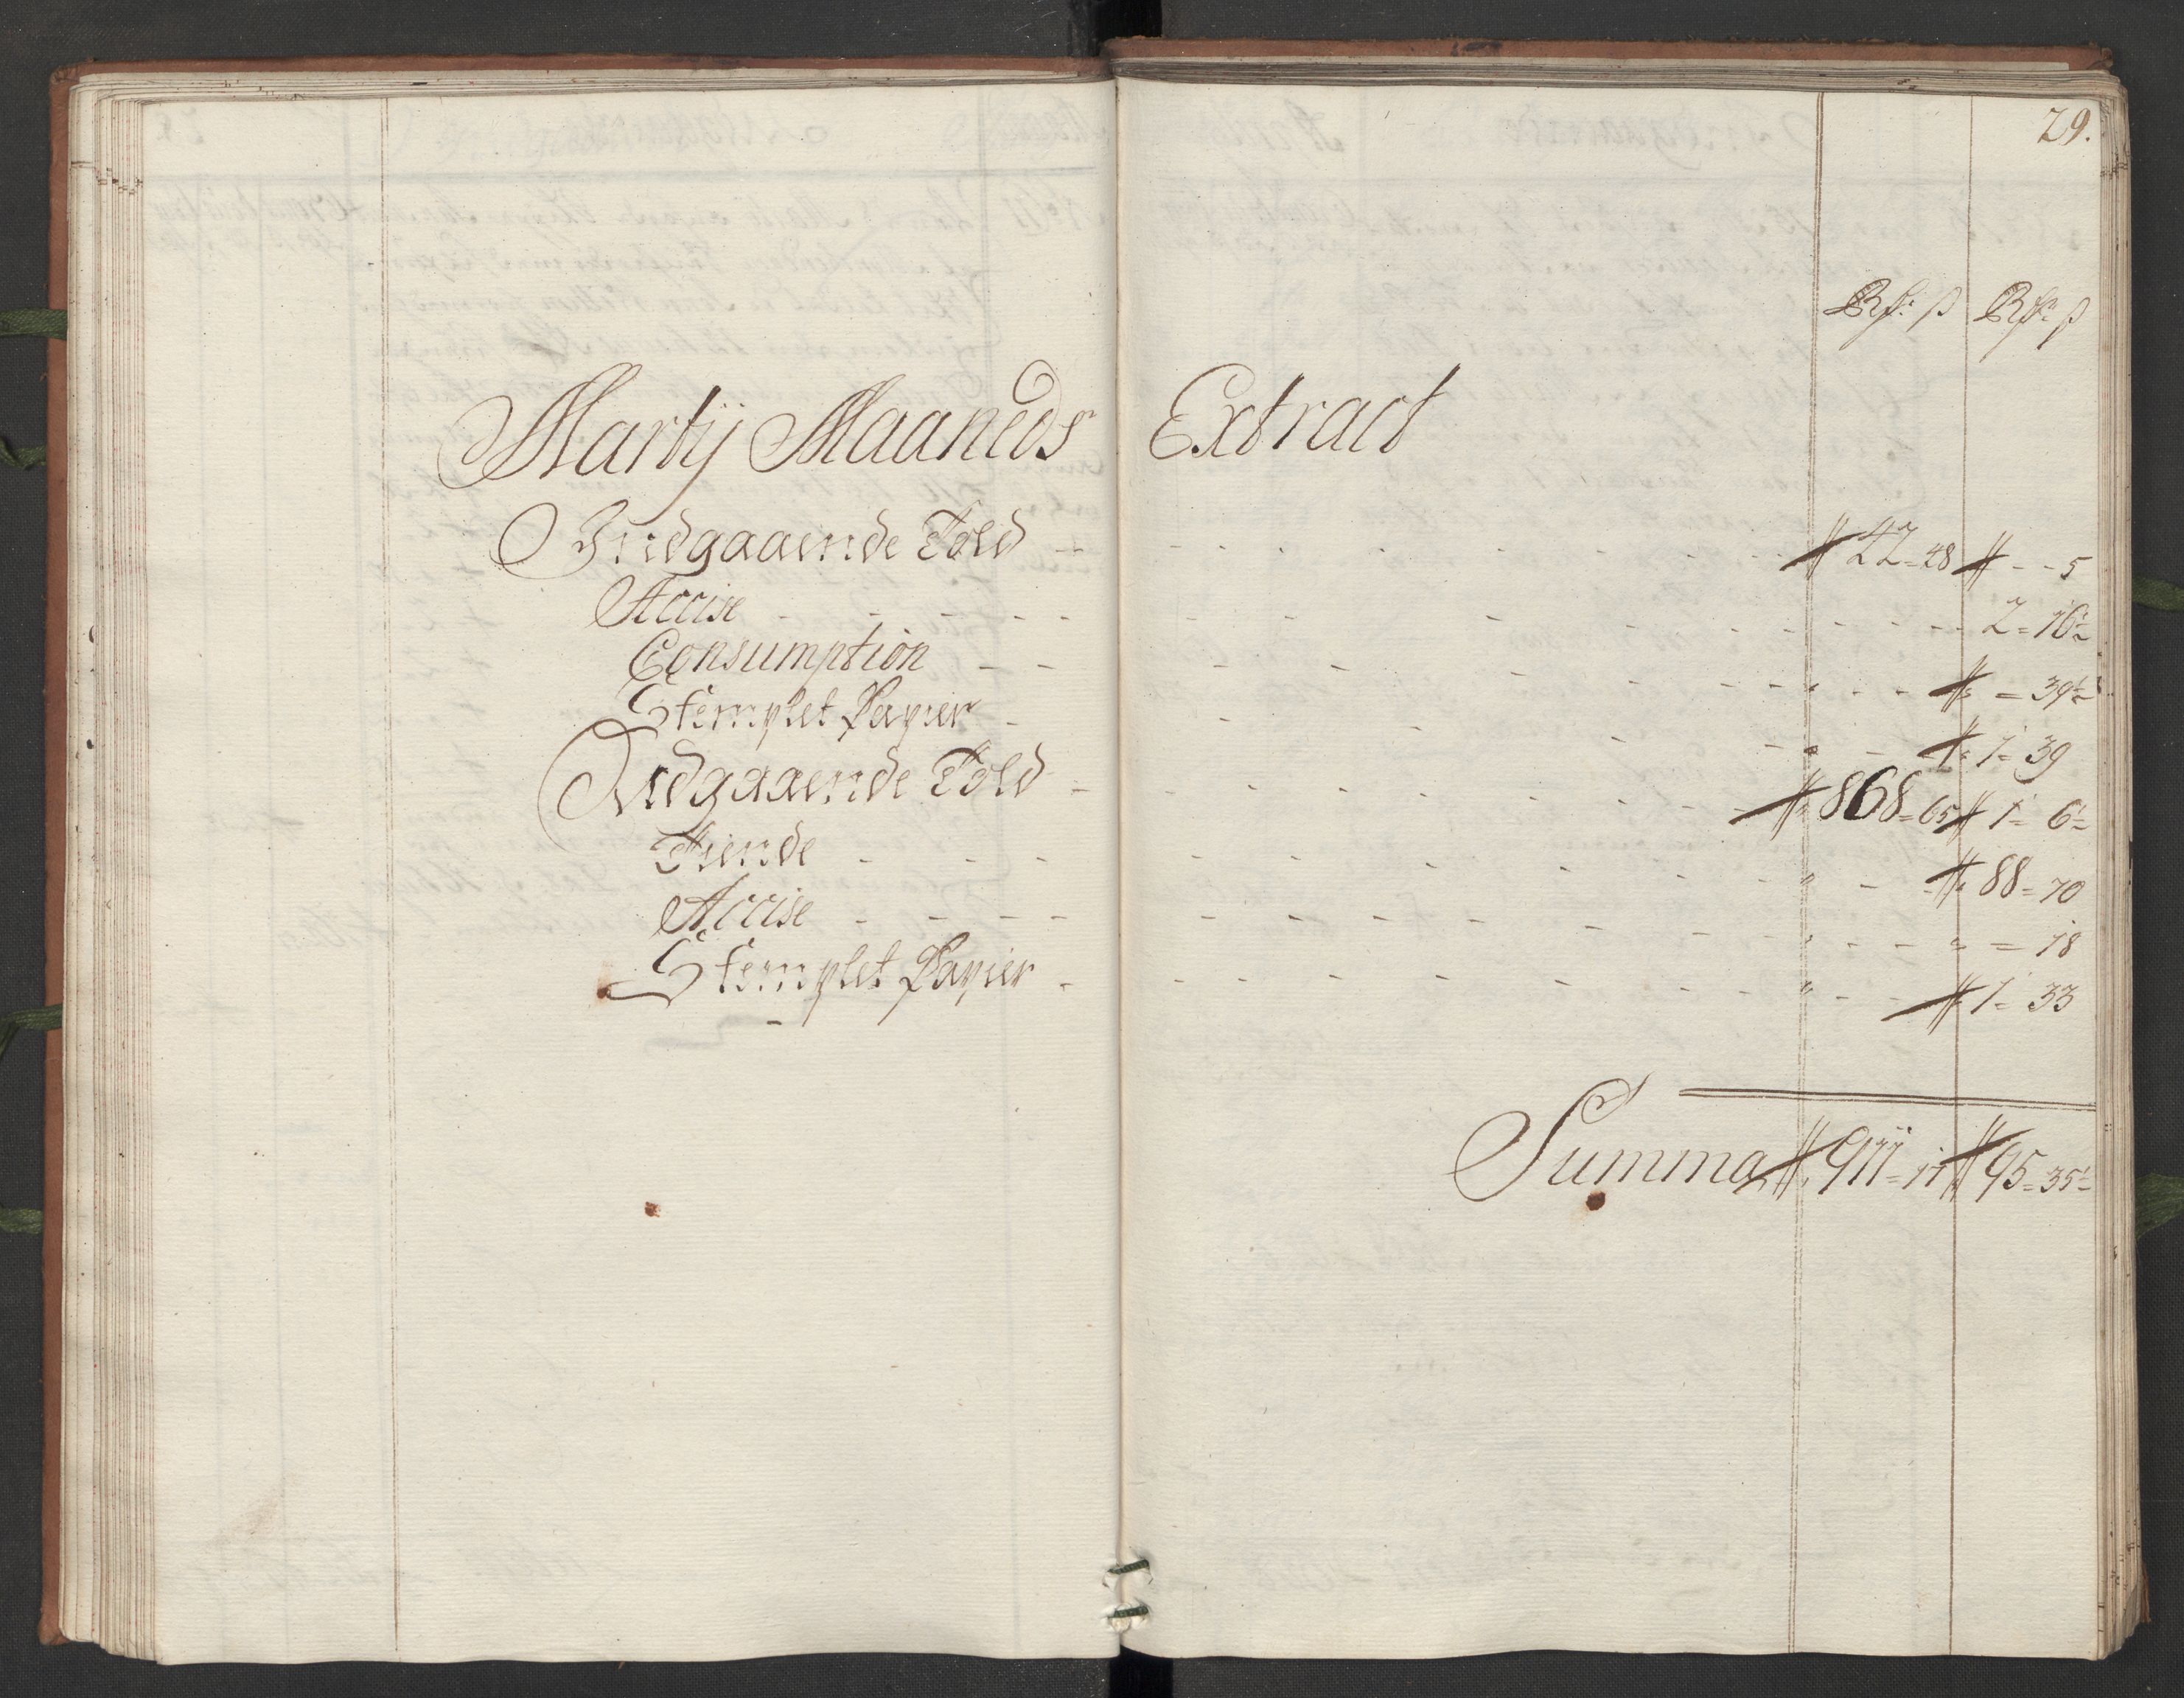 29.
Rdr: ß Rdr: ß
Martij Maaneds Extract
Indgaaende Told - - - - - # 42 = 48 # - - 5
Accise - - - - - 2 = 16½
Consumption - - - - - # = 39½
Stemplet Papier - - - - - # 1 = 39
Udgaaende Told - - - - - # 868 = 65 # 1 = 6½
Tiende - - - - - # 88 = 70
Accise - - - - - " = 18
Stemplet Papier - - - - - # 1 = 33
Summa # 911 = 17 # 95 = 35½